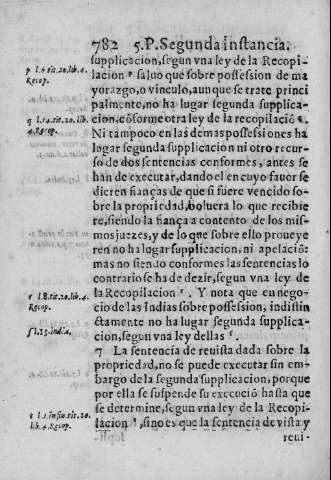 782 5.P.Segunda instancia.
supplicacion, segun vna ley de la Recopi-
p l.4.tit.20.lib.4. Recop.
lacion ᵖ saluo que sobre possession de ma
yorazgo, o vinculo, aunque se trate princi
palmente, no ha lugar segunda supplica-
q l.14.tit.20.lib. 4.Recop.
cion, cõforme otra ley de la recopilació q.
Ni tampoco en las demas possessiones ha
lugar segunda supplicacion ni otro recur
so de dos sentencias conformes, antes se
han de executar, dando el en cuyo fauor se
dieren fianças de que si fuere vencido so-
bre la propriedad, boluera lo que recibie
re, siendo la fiança a contento de los mis-
mos juezes, y de lo que sobre ello proueye
ren no ha lugar supplicacion, ni apelació:
mas no siendo conformes las sentencias lo
contrario se ha de dezir, segun vna ley de
r l.8.tit.20.lib.4. Recop.
la Recopilacion ʳ. Y nota que en nego-
cio de las Indias sobre possesion, indistin
ctamente no ha lugar segunda supplica-
s l.13.indi.
cion, segun vna ley dellas ˢ.
7 La sentencia de reuista dada sobre la
propriedad, no se puede executar sin em-
bargo de la segunda supplicacion, porque
por ella se suspende su execució hasta que
t l.1.infin.tit.20. lib.4.Recop.
se determine, segun vna ley de la Recopi-
lacion ᵗ, sino es que la sentencia de vista y
reui-